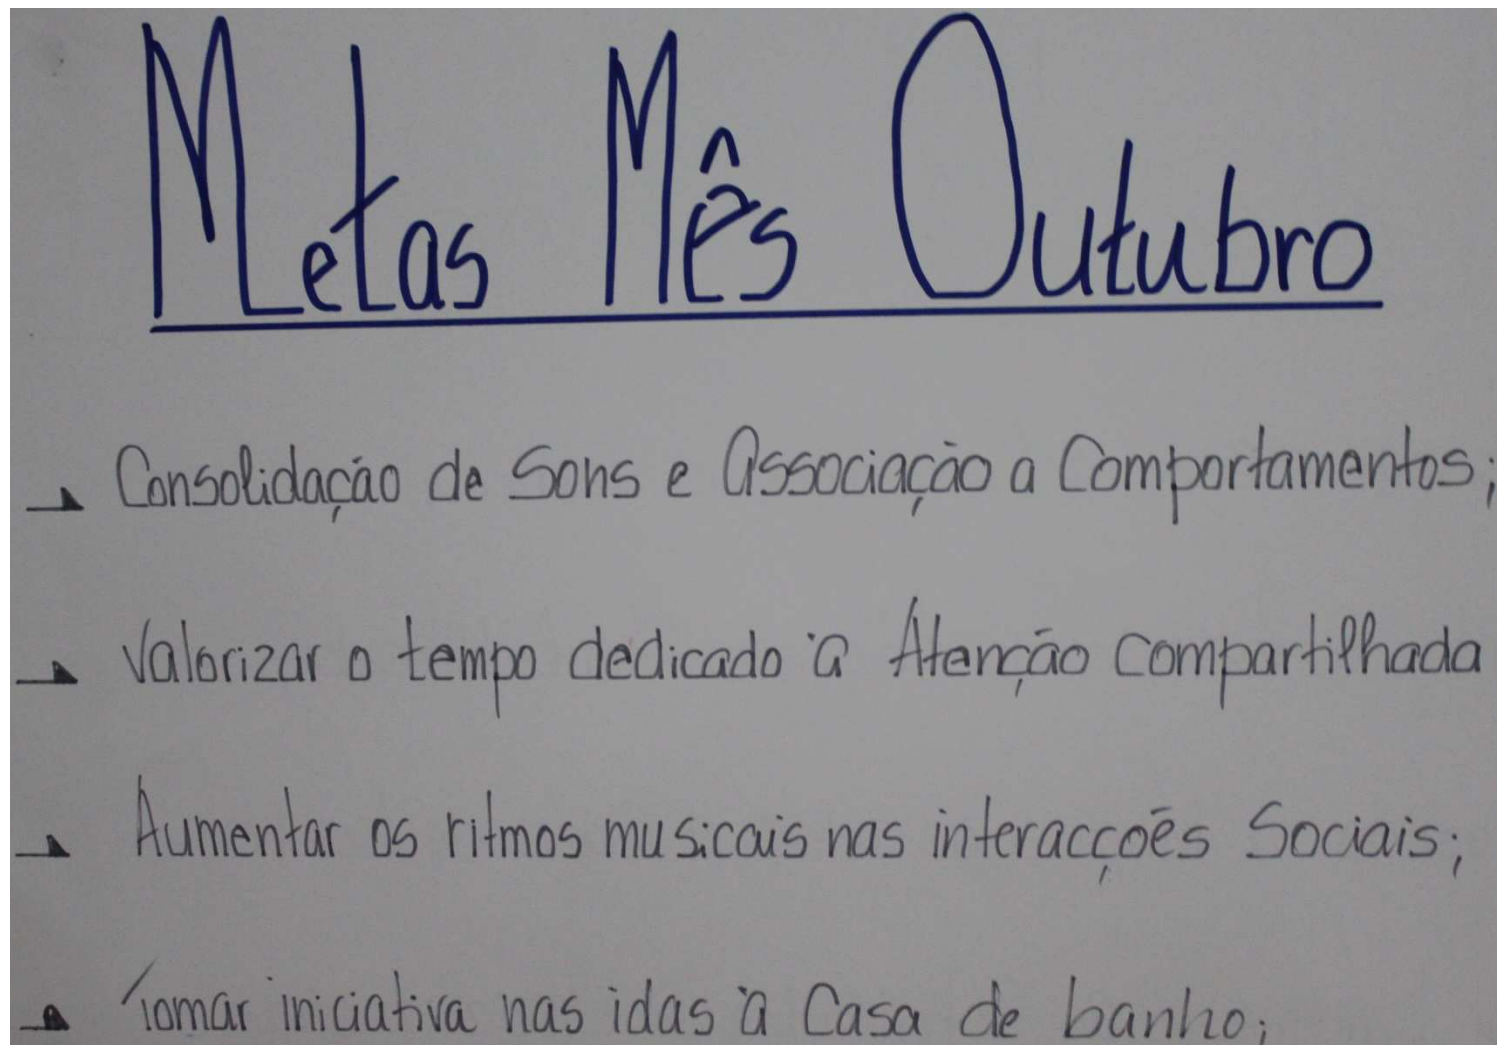 Metas Mês Outubro
Consolidação de Sons e Associação a Comportamentos;
Valorizar o tempo dedicado à Atenção compartilhada
Aumentar os ritmos musicais nas interacções Sociais;
Tomar iniciativa nas idas à Casa de banho;